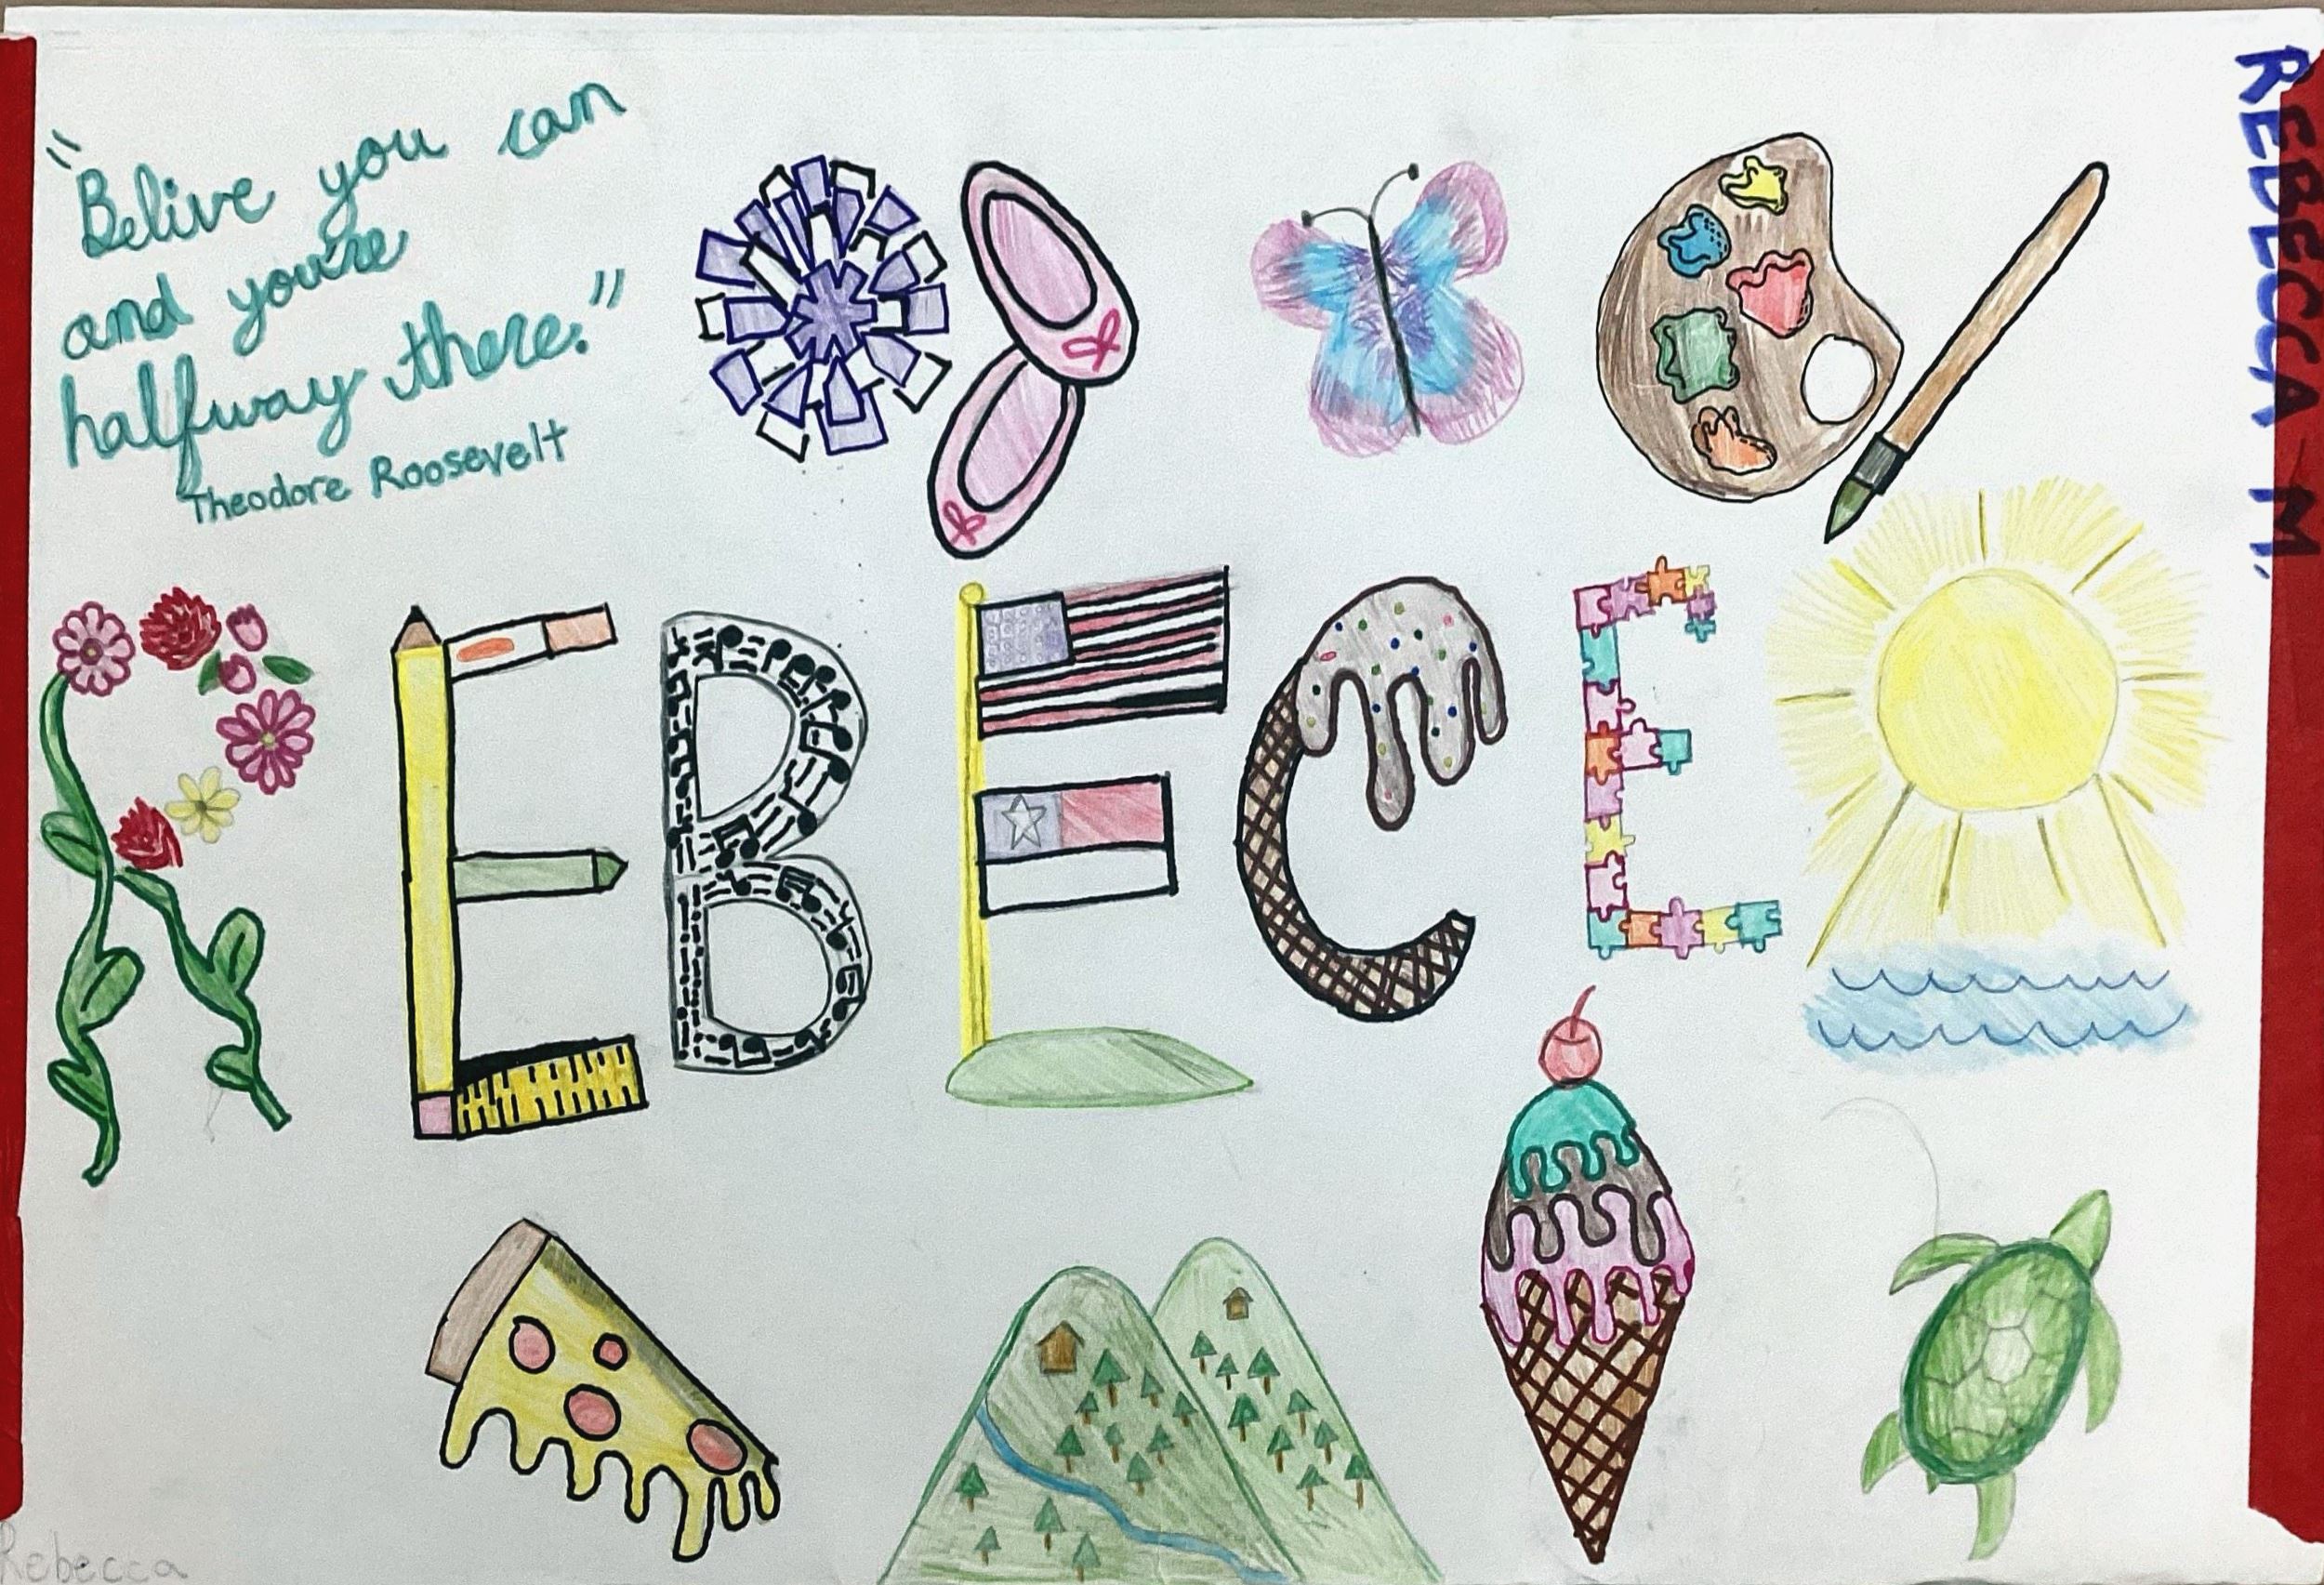 "Belive you can
and you're
halfway there."
Theodore Roosevelt
REBECCA M.
REBECE
Rebecca